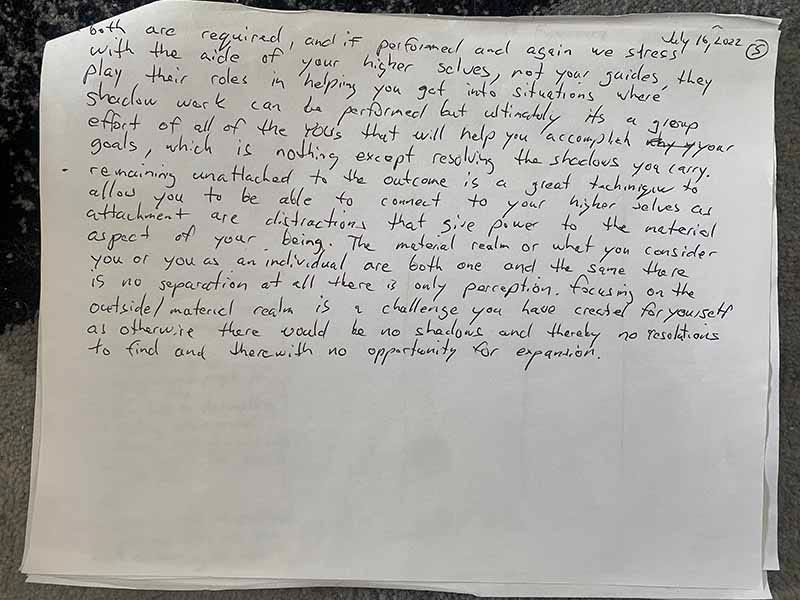 July 16, 2022 5
both are required, and if performed and again we stress
with the aide of your higher selves, not your guides, they
play their roles in helping you get into situations where
shadow work can be performed but ultimately its a group
effort of all of the yous that will help you accomplish your
goals, which is nothing except resolving the shadows you carry.
- remaining unattached to the outcome is a great to
allow you to be able to connect to your higher selves as
attachment are distractions that give power to the material
aspect of your being. The material realm or what you consider
you or you as an individual are both one and the same there
is no separation at all there is only perception. focusing on the
outside/material realm is a challenge you have created for yourself
as otherwise there would be no shadows and thereby no resolutions
to find and therewith no opportunity for expansion.